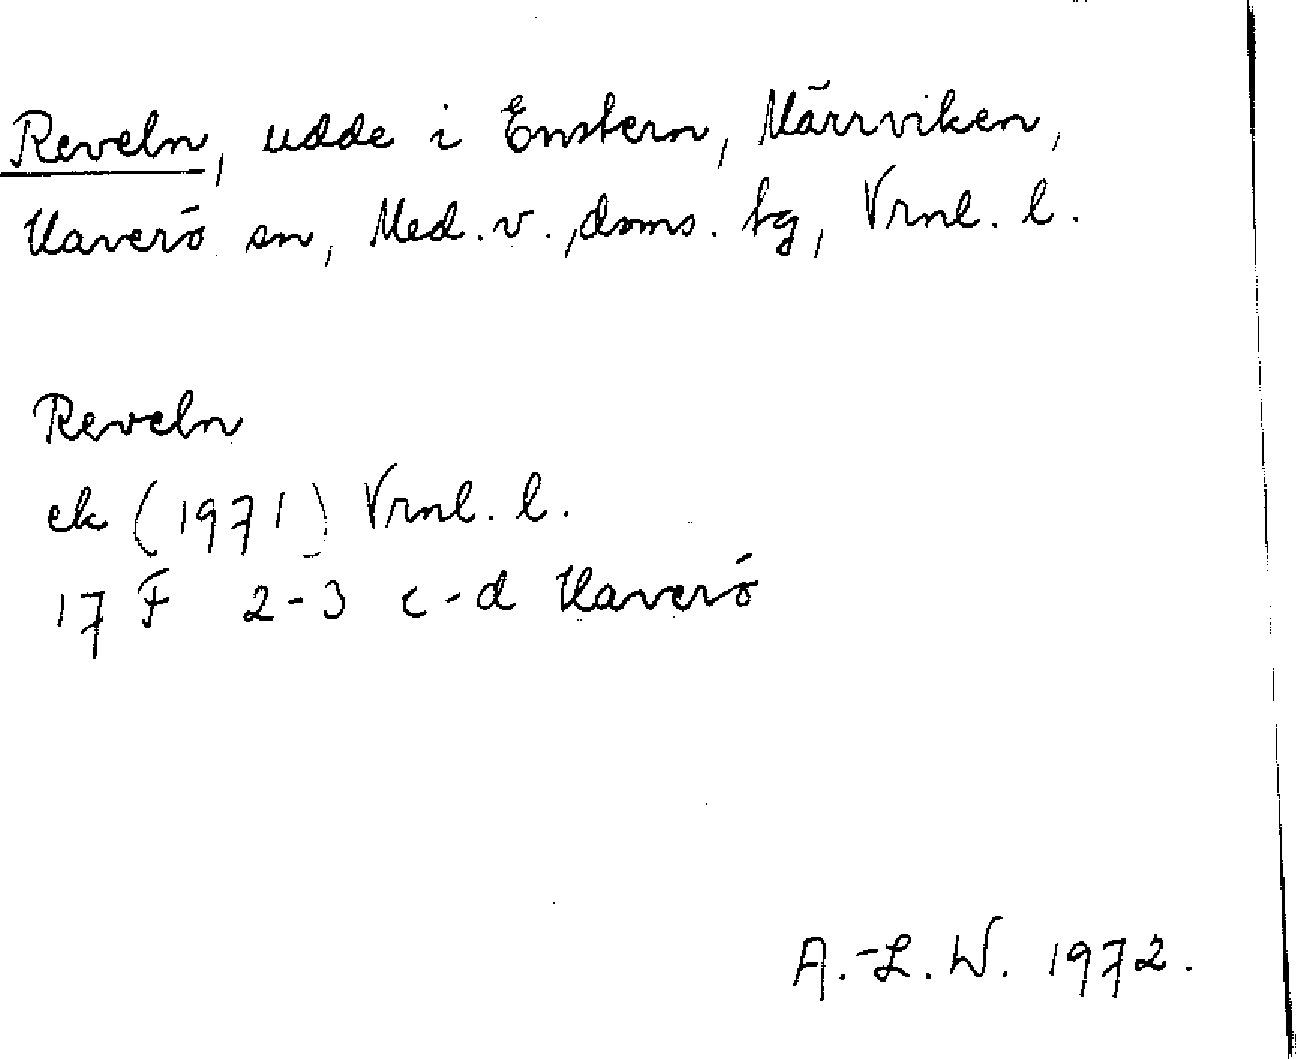 Reveln, udde i Enstern, Märrviken,
Haverö sn, Med. v., doms. tg, Vrnl. l.
Reveln
ek (1971) Vrnl. l.
17 F 2-3 c-d Haverö
A.-L. W. 1972.